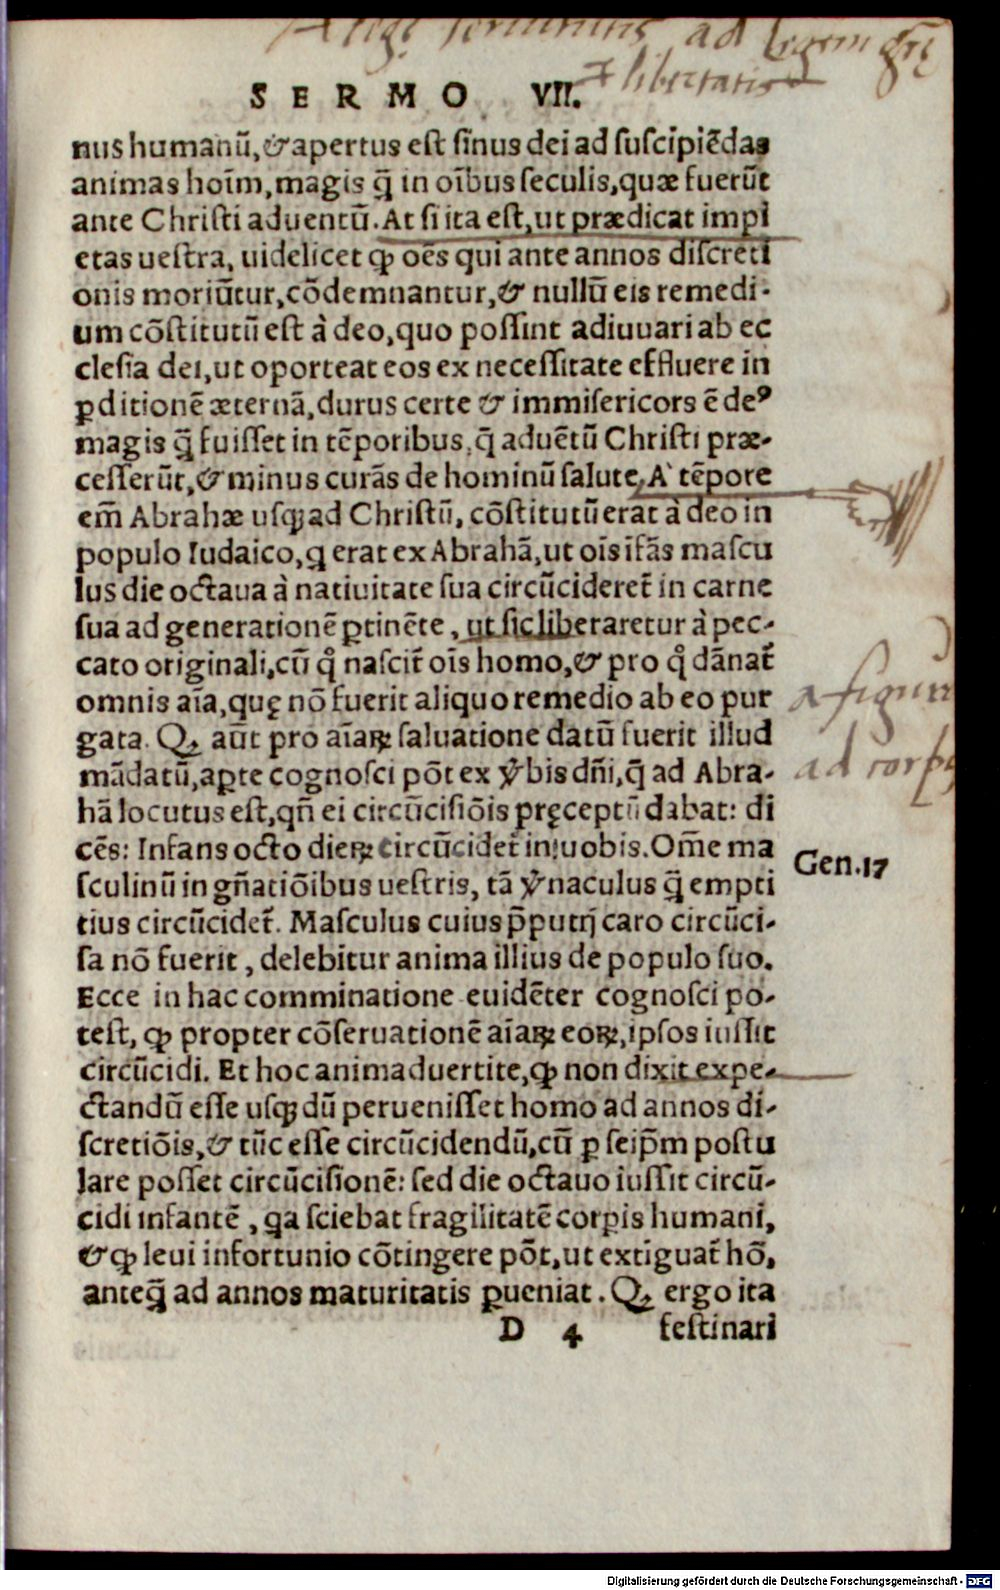 ad legem grē
libertatis
SERMO VII.
nus humanū, & apertus est sinus dei ad suscipiēdas
animas hoīm, magis q̄ in oībus seculis, quæ fuerūt
ante Christi aduentū. At si ita est, ut prædicat impi
etas uestra, uidelicet ꝙ oēs qui ante annos discreti
onis moriūtur, cōdemnantur, & nullū eis remedi-
um cōstitutū est à deo, quo possint adiuuari ab ec
clesia dei, ut oporteat eos ex necessitate effluere in
ꝑditionē æternā, durus certe & immisericors ē deꝰ
magis q̄ fuisset in tēporibus, q̄ aduētū Christi præ-
cesserūt, & minus curās de hominū salute. A` tēpore
em̄ Abrahæ usqꝫ ad Christū, cōstitutū erat à deo in
populo Iudaico, ꝗ erat ex Abrahā, ut oīs īfās mascu
lus die octaua à natiuitate sua circūcideret̄ in carne
sua ad generationē ꝑtinēte, ut sic liberaretur à pec-
cato originali, cū q̊ nascit̄ oīs homo, & pro q̊ dānat̄
omnis aīa, quę nō fuerit aliquo remedio ab eo pur
gata. Qꝫ aūt pro aīaꝝ saluatione datū fuerit illud
mādatū, aꝑte cognosci pōt ex v̓bis dn̄i, q̄ ad Abra-
hā locutus est, qn̄ ei circūcisiōis pręceptū dabat: di
cēs: Infans octo dieꝝ circūcidet̄ in uobis. Om̄e ma
sculinū in gn̄atiōibus uestris, tā v̓naculus q̄ empti
tius circūcidet̄. Masculus cuius p̄putij caro circūci-
sa nō fuerit, delebitur anima illius de populo suo.
Ecce in hac comminatione euidēter cognosci po-
test, ꝙ propter cōseruationē aīaꝝ eoꝝ, ipsos iussit
circūcidi. Et hoc animaduertite, ꝙ non dixit expe-
ctandū esse usqꝫ dū peruenisset homo ad annos di-
scretiōis, & tūc esse circūcidendū, cū ꝑ seip̄m postu
lare posset circūcisionē: sed die octauo iussit circū-
cidi infantē, ꝗa sciebat fragilitatē corꝑis humani,
& ꝙ leui infortunio cōtingere pōt, ut extīguat̄ hō,
anteq̄ ad annos maturitatis ꝑueniat. Qꝫ ergo ita
D 4 festinari
a figura
ad corpꝰ
Gen.17
Digitalisierung gefördert durch die Deutsche Forschungsgemeinschaft - DFG